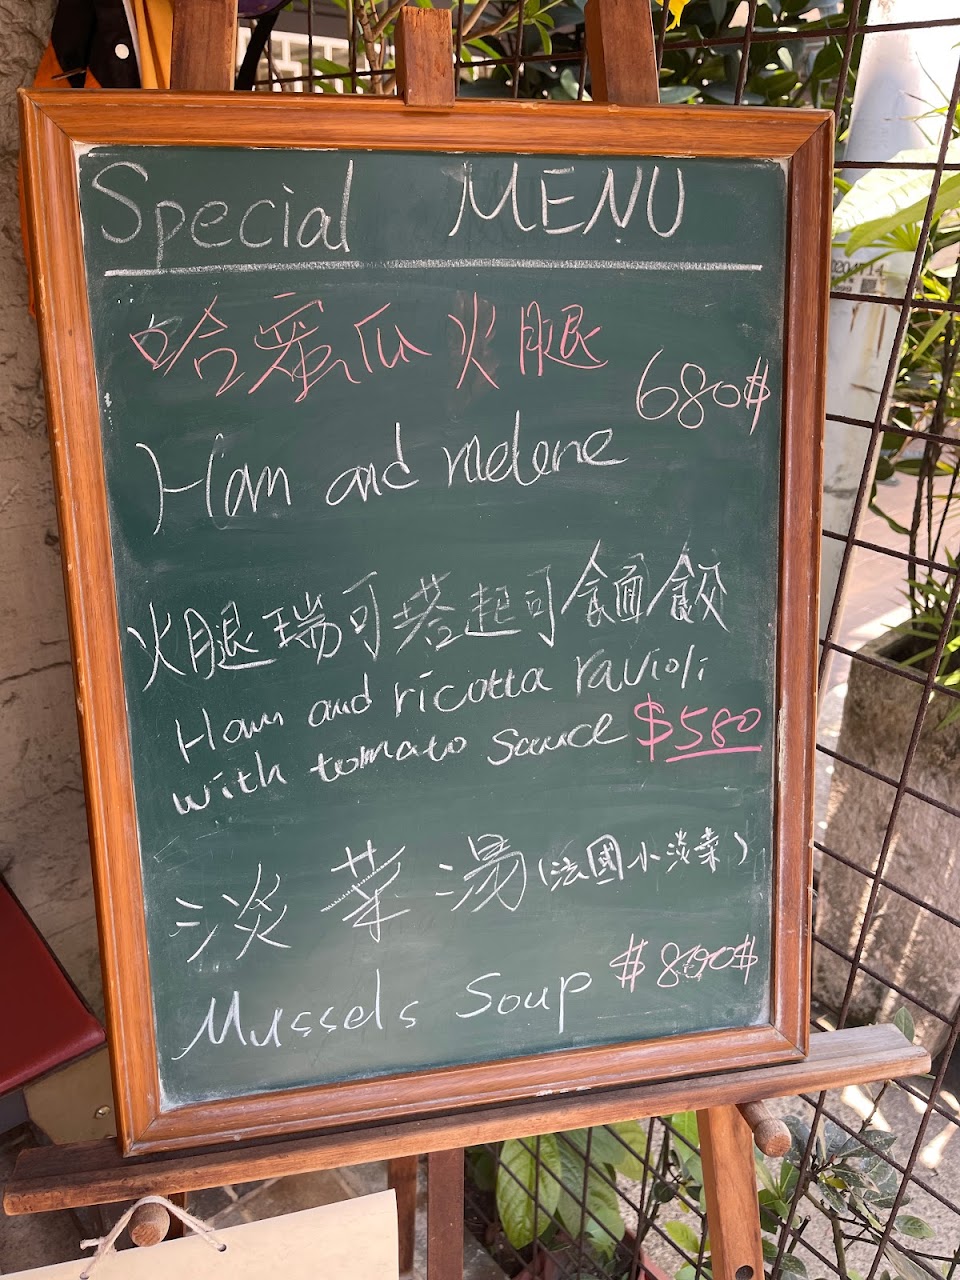 Special MENU
哈蜜瓜火腿
680$
Ham and melone
火腿瑞可塔起司麵餃
Ham and ricotta ravioli
with tomato sauce $580
淡菜湯(法國小淡菜)
Mussels Soup $800$